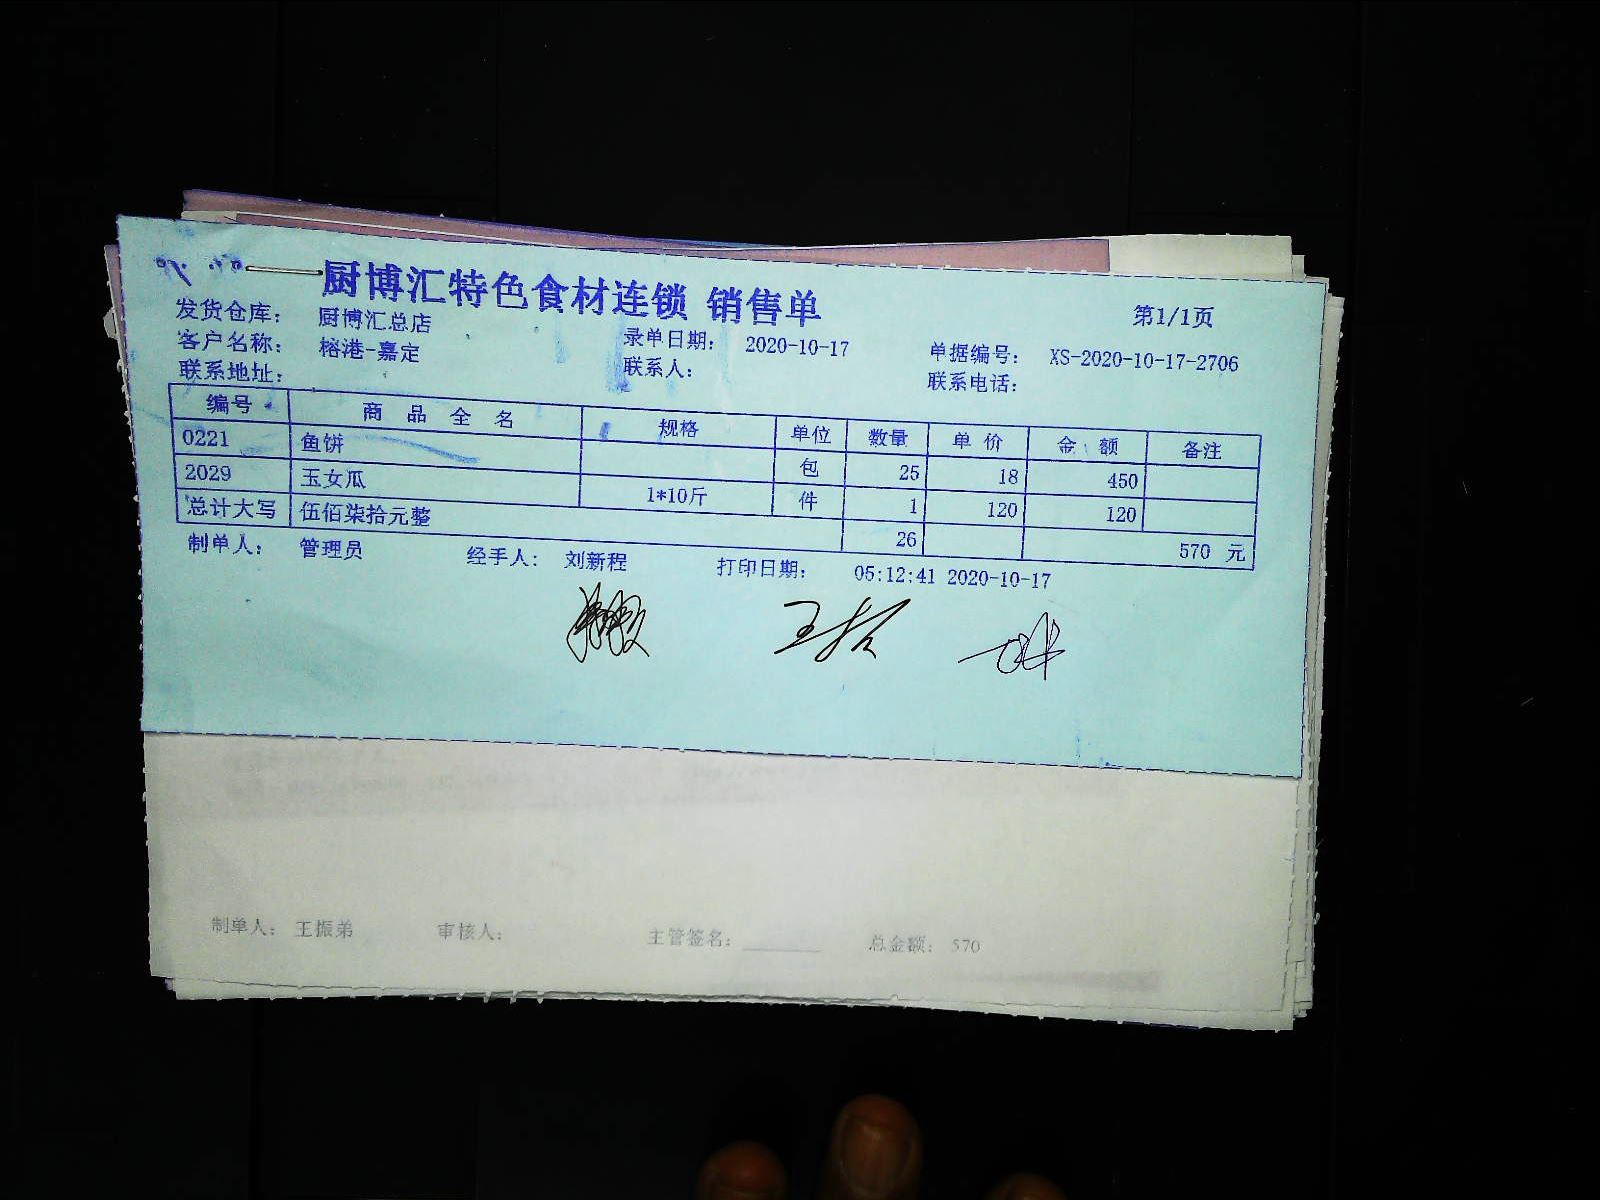 厨博汇特色食材连锁 销售单
第1/1页
发货仓库： 厨博汇总店 录单日期： 2020-10-17 单据编号： XS-2020-10-17-2706
客户名称： 榕港-嘉定 联系人： 联系电话：
联系地址：
编号 商品全名 规格 单位 数量 单价 金额 备注
0221 鱼饼 包 25 18 450
2029 玉女瓜 1*10斤 件 1 120 120
总计大写 伍佰柒拾元整 26 570 元
制单人： 管理员 经手人： 刘新程 打印日期： 05:12:41 2020-10-17
制单人： 王振弟 审核人： 主管签名： 总金额： 570